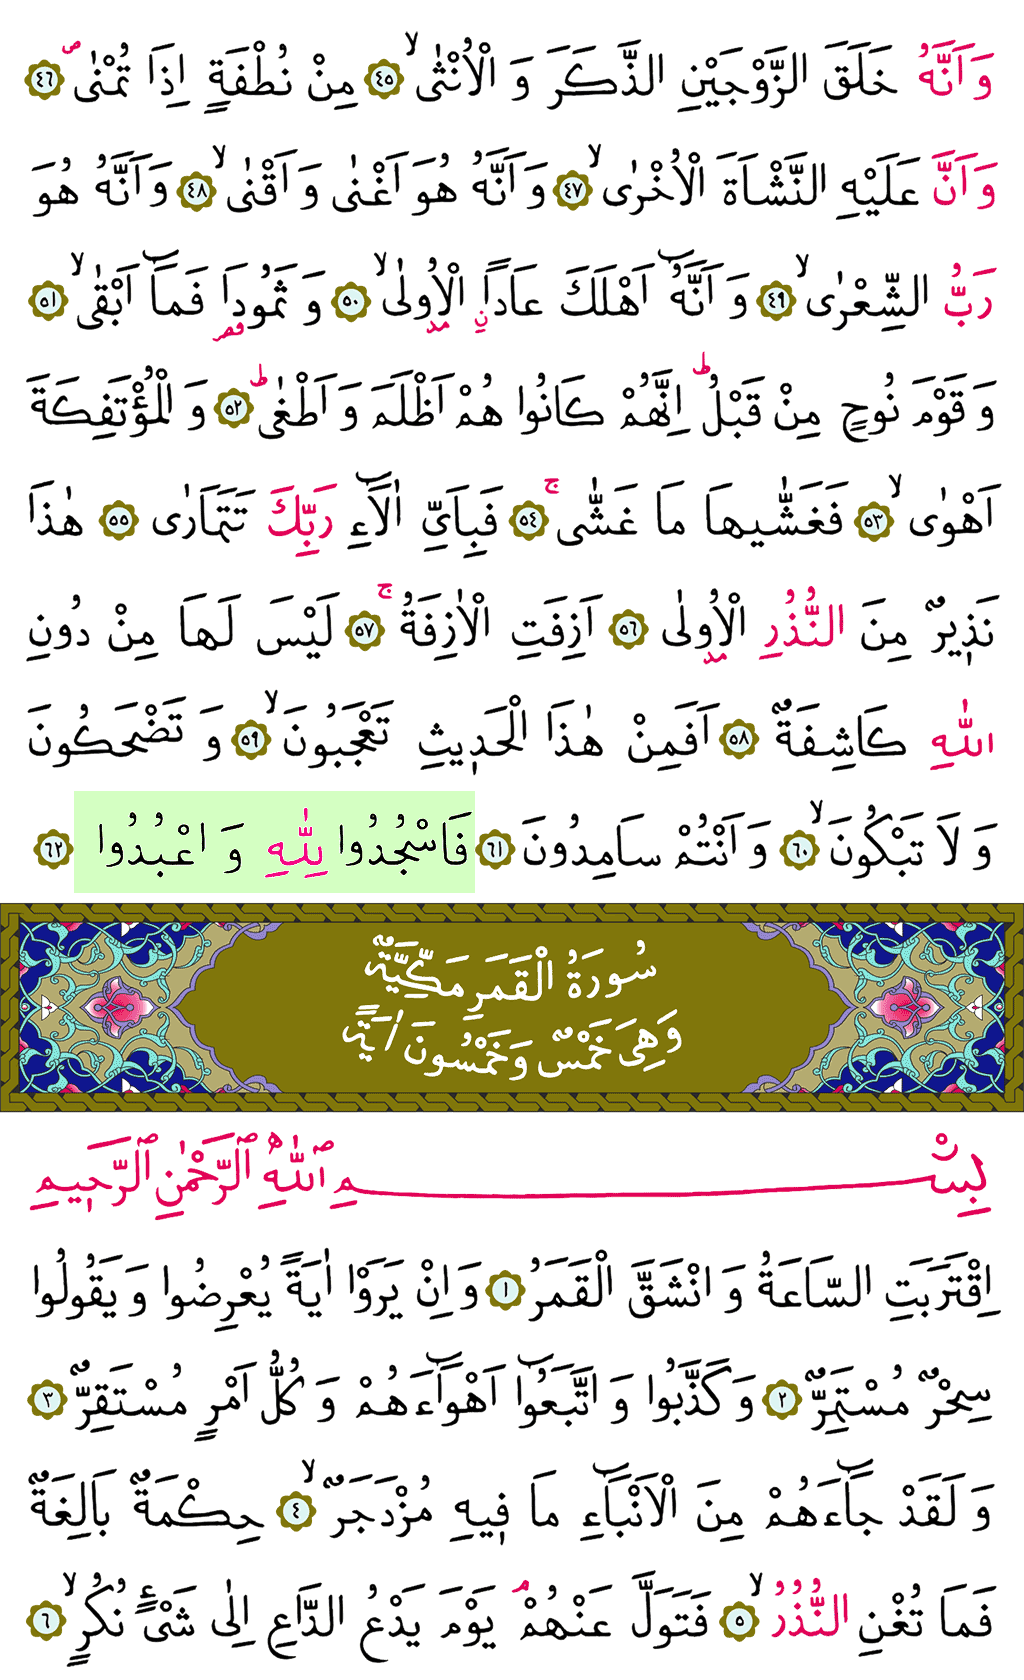 وَاَنَّهُ خَلَقَ الزَّوْجَيْنِ الذَّكَرَ وَ الْاُنْثٰىۙ ﴿٤٥﴾ مِنْ نُطْفَةٍ اِذَا تُمْنٰىۖ ﴿٤٦﴾
وَاَنَّ عَلَيْهِ النَّشْاَةَ الْاُخْرٰىۙ ﴿٤٧﴾ وَاَنَّهُ هُوَ اَغْنٰى وَاَقْنٰىۙ ﴿٤٨﴾ وَاَنَّهُ هُوَ
رَبُّ الشِّعْرٰىۙ ﴿٤٩﴾ وَاَنَّهُٓ اَهْلَكَ عَاداًۨ الْاُو۫لٰىۙ ﴿٥٠﴾ وَثَمُودَا۬ فَمَٓا اَبْقٰىۙ ﴿٥١﴾
وَقَوْمَ نُوحٍ مِنْ قَبْلُۜ اِنَّهُمْ كَانُوا هُمْ اَظْلَمَ وَاَطْغٰىۜ ﴿٥٢﴾ وَالْمُؤْتَفِكَةَ
اَهْوٰىۙ ﴿٥٣﴾ فَغَشّٰيهَا مَا غَشّٰىۚ ﴿٥٤﴾ فَبِاَيِّ اٰلَٓاءِ رَبِّكَ تَتَمَارٰى ﴿٥٥﴾ هٰذَا
نَذ۪يرٌ مِنَ النُّذُرِ الْاُو۫لٰى ﴿٥٦﴾ اَزِفَتِ الْاٰزِفَةُۚ ﴿٥٧﴾ لَيْسَ لَهَا مِنْ دُونِ
اللّٰهِ كَاشِفَةٌ ﴿٥٨﴾ اَفَمِنْ هٰذَا الْحَد۪يثِ تَعْجَبُونَۙ ﴿٥٩﴾ وَتَضْحَكُونَ
وَلَا تَبْكُونَۙ ﴿٦٠﴾ وَاَنْتُمْ سَامِدُونَ ﴿٦١﴾ فَاسْجُدُوا لِلّٰهِ وَاعْبُدُوا ﴿٦٢﴾
سُورَةُ الْقَمَرِ مَكِّيَّةٌ
وَهِىَ خَمْسٌ وَخَمْسُونَ اٰيَةً
بِسْمِ اللّٰهِ الرَّحْمٰنِ الرَّح۪يمِ
اِقْتَرَبَتِ السَّاعَةُ وَانْشَقَّ الْقَمَرُ ﴿١﴾ وَاِنْ يَرَوْا اٰيَةً يُعْرِضُوا وَيَقُولُوا
سِحْرٌ مُسْتَمِرٌّ ﴿٢﴾ وَكَذَّبُوا وَاتَّبَعُٓوا اَهْوَٓاءَهُمْ وَكُلُّ اَمْرٍ مُسْتَقِرٌّ ﴿٣﴾
وَلَقَدْ جَٓاءَهُمْ مِنَ الْاَنْبَٓاءِ مَا ف۪يهِ مُزْدَجَرٌۙ ﴿٤﴾ حِكْمَةٌ بَالِغَةٌ
فَمَا تُغْنِ النُّذُرُۙ ﴿٥﴾ فَتَوَلَّ عَنْهُمْۢ يَوْمَ يَدْعُ الدَّاعِ اِلٰى شَيْءٍ نُكُرٍۙ ﴿٦﴾